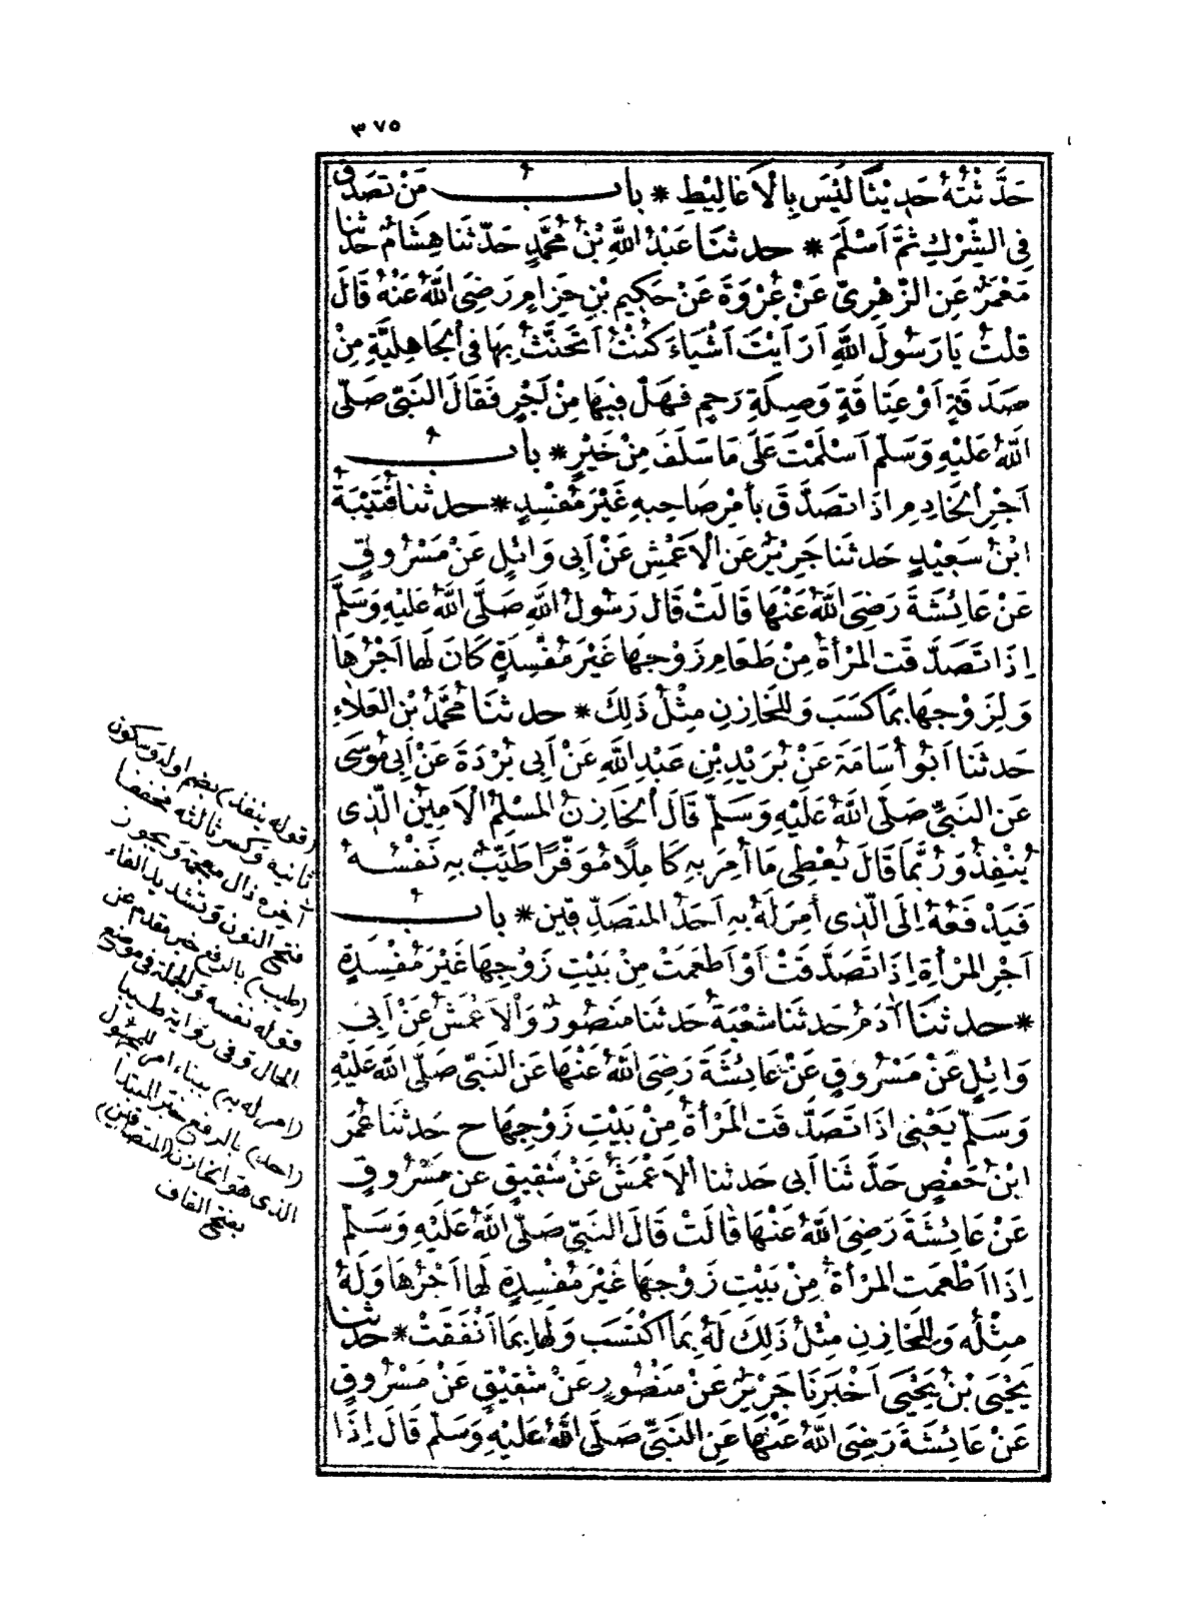 ٣٧٥
حَدَّثْتُهُ حَدِيْثًا لَيْسَ بِالْاَغَالِيْطِ * بابُ مَنْ تَصَدَّقَ
فِى الشِّرْكِ ثُمَّ اَسْلَمَ * حدثنَا عَبْدُ اللَّهِ بْنُ مُحَمَّدٍ حَدّثَنَا هِشَامٌ حَدّثنا
مَعْمَرٌ عَنِ الزُّهْرِىّ عَنْ عُرْوَةَ عَنْ حَكِيمِ بْنِ حِزَامٍ رَضِىَ اللَّهُ عَنْهُ قَالَ
قُلْتُ يَا رَسُولَ اللَّهِ اَرَاَيْتَ اَشْيَاءَ كُنْتُ اَتَحَنَّثُ بِهَا فِى الْجَاهِلِيَّةِ مِنْ
صَدَقَةٍ اَوْ عِتَاقَةٍ وَصِلَةِ رَحِمٍ فَهَلْ فِيهَا مِنْ اَجْرٍ فَقَالَ النَّبِىّ صَلّى
اللَّهُ عَلَيْهِ وَسَلّمَ اَسْلَمْتَ عَلَى مَا سَلَفَ مِنْ خَيْرٍ * بابُ
اَجْرِ الْخَادِمِ اِذَا تَصَدَّقَ بِاَمْرِ صَاحِبِهِ غَيْرَ مُفْسِدٍ * حدثنا قُتَيْبَةُ
ابْنُ سَعِيْدٍ حَدثَنا جَرِيْرٌ عَنِ الْاَعْمَشِ عَنْ اَبِى وَائِلٍ عَنْ مَسْرُوقٍ
عَنْ عَائِشَةَ رَضِىَ اللَّهُ عَنْهَا قَالَتْ قَالَ رَسُولُ اللَّهِ صَلَّى اللَّهُ عَلَيْهِ وَسَلَّمَ
اِذَا تَصَدَّقَتِ المَرْأةُ مِنْ طَعَامِ زَوْجِهَا غَيْرَ مُفْسِدَةٍ كَانَ لَهَا اَجْرُهَا
وَلِزَوْجِهَا بِمَا كَسَبَ وَلِلْخَازِنِ مِثْلُ ذَلِكَ * حدثنَا مُحَمَّدُ بْنُ الْعَلاءِ
حَدثَنَا اَبُو اُسَامَةَ عَنْ بُرَيْدِ بْنِ عَبْدِ اللَّهِ عَنْ اَبِى بُرْدَةَ عَنْ اَبِى مُوسَى
عَنِ النَّبِىِّ صَلَّى اللَّهُ عَلَيْهِ وَسَلَّمَ قَالَ الْخَازِنُ المُسْلِمُ الْاَمِيْنُ الَّذِى
يُنْفِذُ وَرُبَّمَا قَالَ يُعْطِى مَا اُمِرَ بِهِ كَامِلًا مُوَفَّرًا طَيِّبٌ بِهِ نَفْسُهُ
فَيَدْفَعُهُ اِلَى الَّذِى اُمِرَ لَهُ بِهِ اَحَدُ المُتَصَدِّقِيْنَ * بابُ
اَجْرِ المَرْأةِ اِذَا تَصَدَّقَتْ اَوْ اَطْعَمَتْ مِنْ بَيْتِ زَوْجِهَا غَيْرَ مُفْسِدَةٍ
* حدثنَا اٰدَمُ حَدثَنَا شُعْبَةُ حَدثَنا مَنْصُورٌ وَالْاَعْمَشُ عَنْ اَبِى
وَائِلٍ عَنْ مَسْرُوقٍ عَنْ عَائِشَةَ رَضِىَ اللَّهُ عَنْهَا عَنِ النَّبِىّ صَلَّى اللَّهُ عَلَيْهِ
وَسَلَّمَ يَعْنِى اِذَا تَصَدَّقَتِ المَرْأةُ مِنْ بَيْتِ زَوْجِهَا ح حَدثنَا عُمَرُ
ابْنُ حَفْصٍ حَدَّثَنَا اَبِى حَدثنا الْاَعْمَشُ عَنْ شَقِيقٍ عَنْ مَسْرُوقٍ
عَنْ عَائِشَةَ رَضِىَ اللَّهُ عَنْهَا قَالَتْ قَالَ النَّبِىّ صَلّى اللَّهُ عَلَيْهِ وَسَلّمَ
اِذَا اَطْعَمَتِ المَرْأةُ مِنْ بَيْتِ زَوْجِهَا غَيْرَ مُفْسِدَةٍ لَهَا اَجْرُهَا وَلَهُ
مِثْلُهُ وَلِلْخَازِنِ مِثْلُ ذَلِكَ لَهُ بِمَا اكْتَسَبَ وَلَهَا بِمَا اَنْفَقَتْ * حدثنا
يَحْيَى بْنُ يَحْيَى اَخْبَرَنَا جَرِيْرٌ عَنْ مَنْصُورٍ عَنْ شَقِيْقٍ عَنْ مَسْرُوقٍ
عَنْ عَائِشَةَ رَضِىَ اللَّهُ عَنْهَا عَنِ النَّبِىِّ صَلَّى اللَّهُ عَلَيْهِ وَسَلّمَ قَالَ اِذَا
(قوله ينفذ) بضم اوله وسكون
ثانيه وكسر ثالثه مخففا
آخره ذال معجمة ويجوز
فتح النون وتشديد الفاء
(طيب) بالرفع خبر مقدم عن
قوله نفسه والجملة فى موضع
الحال وفى رواية طيبا
(امر له به) ببناء امر للمفعول
(احد) بالرفع خبر المبتدا
الذى هو الخازن (المتصدقين)
بفتح القاف